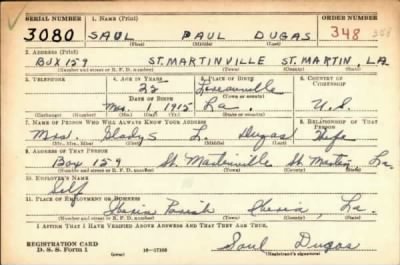 SERIAL NUMBER 1. NAME (Print) ORDER NUMBER
3080 SAUL PAUL DUGAS 348
(First) (Middle) (Last)
2. ADDRESS (Print)
BOX 159 ST. MARTINVILLE ST. MARTIN, LA
(Number and street or R. F. D. number) (Town) (County) (State)
3. TELEPHONE 4. AGE IN YEARS 5. PLACE OF BIRTH 6. COUNTRY OF CITIZENSHIP
25 Loreauville
(Town or county)
DATE OF BIRTH
1 1915 La. U.S.
(Mo.) (Day) (Yr.) (State or country)
7. NAME OF PERSON WHO WILL ALWAYS KNOW YOUR ADDRESS 8. RELATIONSHIP OF THAT PERSON
Mrs. Gladys L. Dugas Wife
(Mr., Mrs., Miss) (First) (Middle) (Last)
9. ADDRESS OF THAT PERSON
Box 159 St. Martinville St. Martin, La.
(Number and street or R. F. D. number) (Town) (County) (State)
10. EMPLOYER'S NAME
Self
11. PLACE OF EMPLOYMENT OR BUSINESS
Iberia Parish Iberia, La.
(Number and street or R. F. D. number) (Town) (County) (State)
I AFFIRM THAT I HAVE VERIFIED ABOVE ANSWERS AND THAT THEY ARE TRUE.
REGISTRATION CARD
D. S. S. Form 1 (over) 16-17105 Saul Dugas
(Registrant's signature)